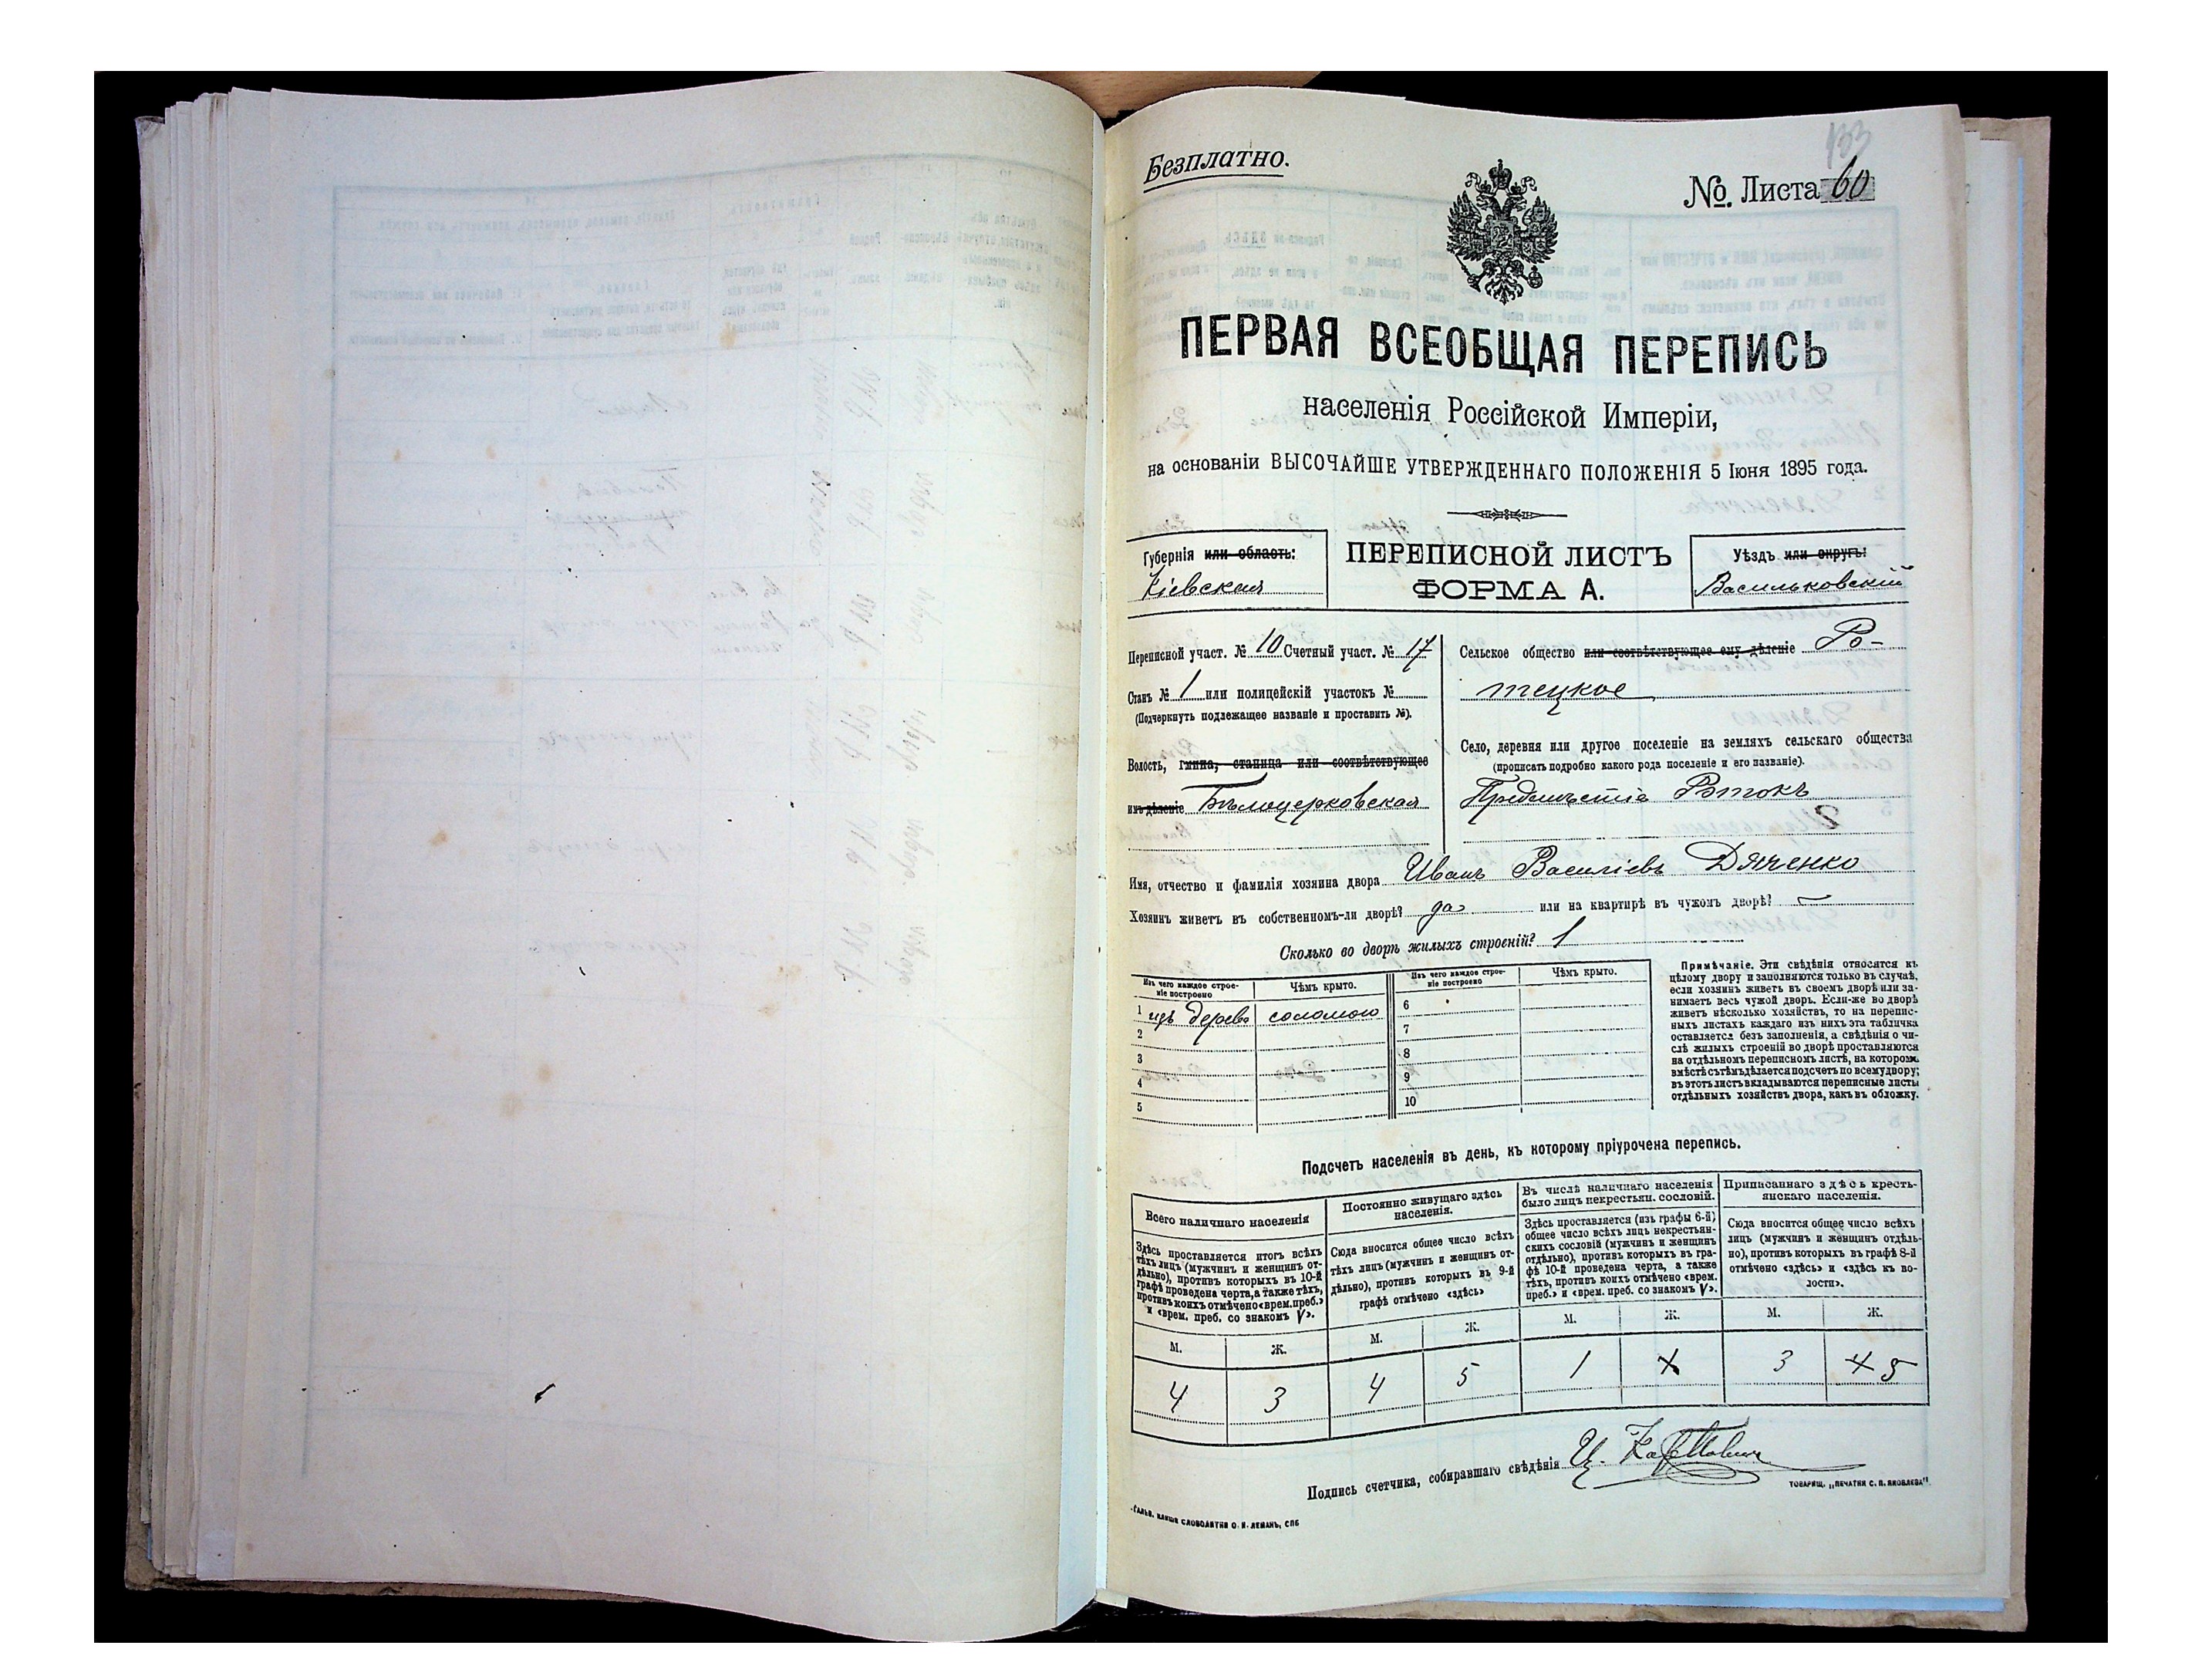 133
Безплатно.
№ Листа 60
ПЕРВАЯ ВСЕОБЩАЯ ПЕРЕПИСЬ
населенія Россійской Имперіи,
на основаніи ВЫСОЧАЙШЕ УТВЕРЖДЕННАГО ПОЛОЖЕНІЯ 5 Іюня 1895 года.
Губернія или область:
Кіевская
ПЕРЕПИСНОЙ ЛИСТЪ
ФОРМА А.
Уѣздъ или округъ:
Васильковскій
Переписной участ. № 10 Счетный участ. № 17
Станъ № 1 или полицейскій участокъ №
(Подчеркнуть подлежащее названіе и проставить №).
Волость, гмина, станица или соотвѣтствующее
имъ дѣленіе Бѣлоцерковская
Сельское общество или соотвѣтствующее ему дѣленіе Ро-
тецкое
Село, деревня или другое поселеніе на земляхъ сельскаго общества
(прописать подробно какого рода поселеніе и его названіе).
Предмѣстіе Ротокъ
Имя, отчество и фамилія хозяина двора Иванъ Василіевъ Дяченко
Хозяинъ живетъ въ собственномъ-ли дворѣ? да или на квартирѣ въ чужомъ дворѣ? —
Сколько во дворѣ жилыхъ строеній? 1
Изъ чего каждое строе-
ніе построено
Чѣмъ крыто.
Изъ чего каждое строе-
ніе построено
Чѣмъ крыто.
1 изъ дерева соломою
2
3
4
5
6
7
8
9
10
Примѣчаніе. Эти свѣдѣнія относятся къ
цѣлому двору и заполняются только въ случаѣ,
если хозяинъ живетъ въ своемъ дворѣ или за-
нимаетъ весь чужой дворъ. Если-же во дворѣ
живетъ нѣсколько хозяйствъ, то на перепис-
ныхъ листахъ каждаго изъ нихъ эта табличка
оставляется безъ заполненія, а свѣдѣнія о чи-
слѣ жилыхъ строеній во дворѣ проставляются
на отдѣльномъ переписномъ листѣ, на которомъ
вмѣстѣ съ тѣмъ дѣлается подсчетъ по всему двору;
въ этотъ листъ вкладываются переписные листы
отдѣльныхъ хозяйствъ двора, какъ въ обложку.
Подсчетъ населенія въ день, къ которому пріурочена перепись.
Всего наличнаго населенія
Здѣсь проставляется итогъ всѣхъ
тѣхъ лицъ (мужчинъ и женщинъ от-
дѣльно), противъ которыхъ въ 10-й
графѣ проведена черта, а также тѣхъ,
противъ коихъ отмѣчено «врем. преб.»
и «врем. преб. со знакомъ V».
Постоянно живущаго здѣсь
населенія.
Сюда вносится общее число всѣхъ
тѣхъ лицъ (мужчинъ и женщинъ от-
дѣльно), противъ которыхъ въ 9-й
графѣ отмѣчено «здѣсь»
Въ числѣ наличнаго населенія
было лицъ некрестьян. сословій.
Здѣсь проставляется (изъ графы 6-й)
общее число всѣхъ лицъ некрестьян-
скихъ сословій (мужчинъ и женщинъ
отдѣльно), противъ которыхъ въ гра-
фѣ 10-й проведена черта, а также
тѣхъ, противъ коихъ отмѣчено «врем.
преб.» и «врем. преб. со знакомъ V».
Приписаннаго здѣсь кресть-
янскаго населенія.
Сюда вносится общее число всѣхъ
лицъ (мужчинъ и женщинъ отдѣль-
но), противъ которыхъ въ графѣ 8-й
отмѣчено «здѣсь» и «здѣсь къ во-
лости».
М. Ж. М. Ж. М. Ж. М. Ж.
4 3 4 5 1 х 3 4 5
Подпись счетчика, собиравшаго свѣдѣнія
ГАЛЬВ. КЛИШЕ СЛОВОЛИТНИ О. И. ЛЕМАНЪ, СПБ
ТОВАРИЩ. „ПЕЧАТНЯ С. П. ЯКОВЛЕВА"